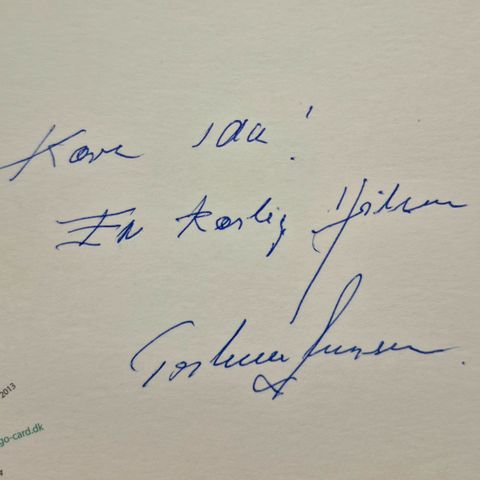 Kære Ida!
En kærlig Hilsen
2013
go-card.dk
4